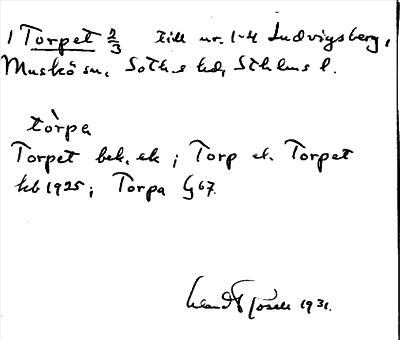 1 Torpet 2/3 till nr. 1-4 Ludvigsberg,
Muskö sn. Soth-s hd, Sthlms l.
tòrpa
Torpet bek. ek; Torp el. Torpet
kb 1925; Torpa G 67.
1931.